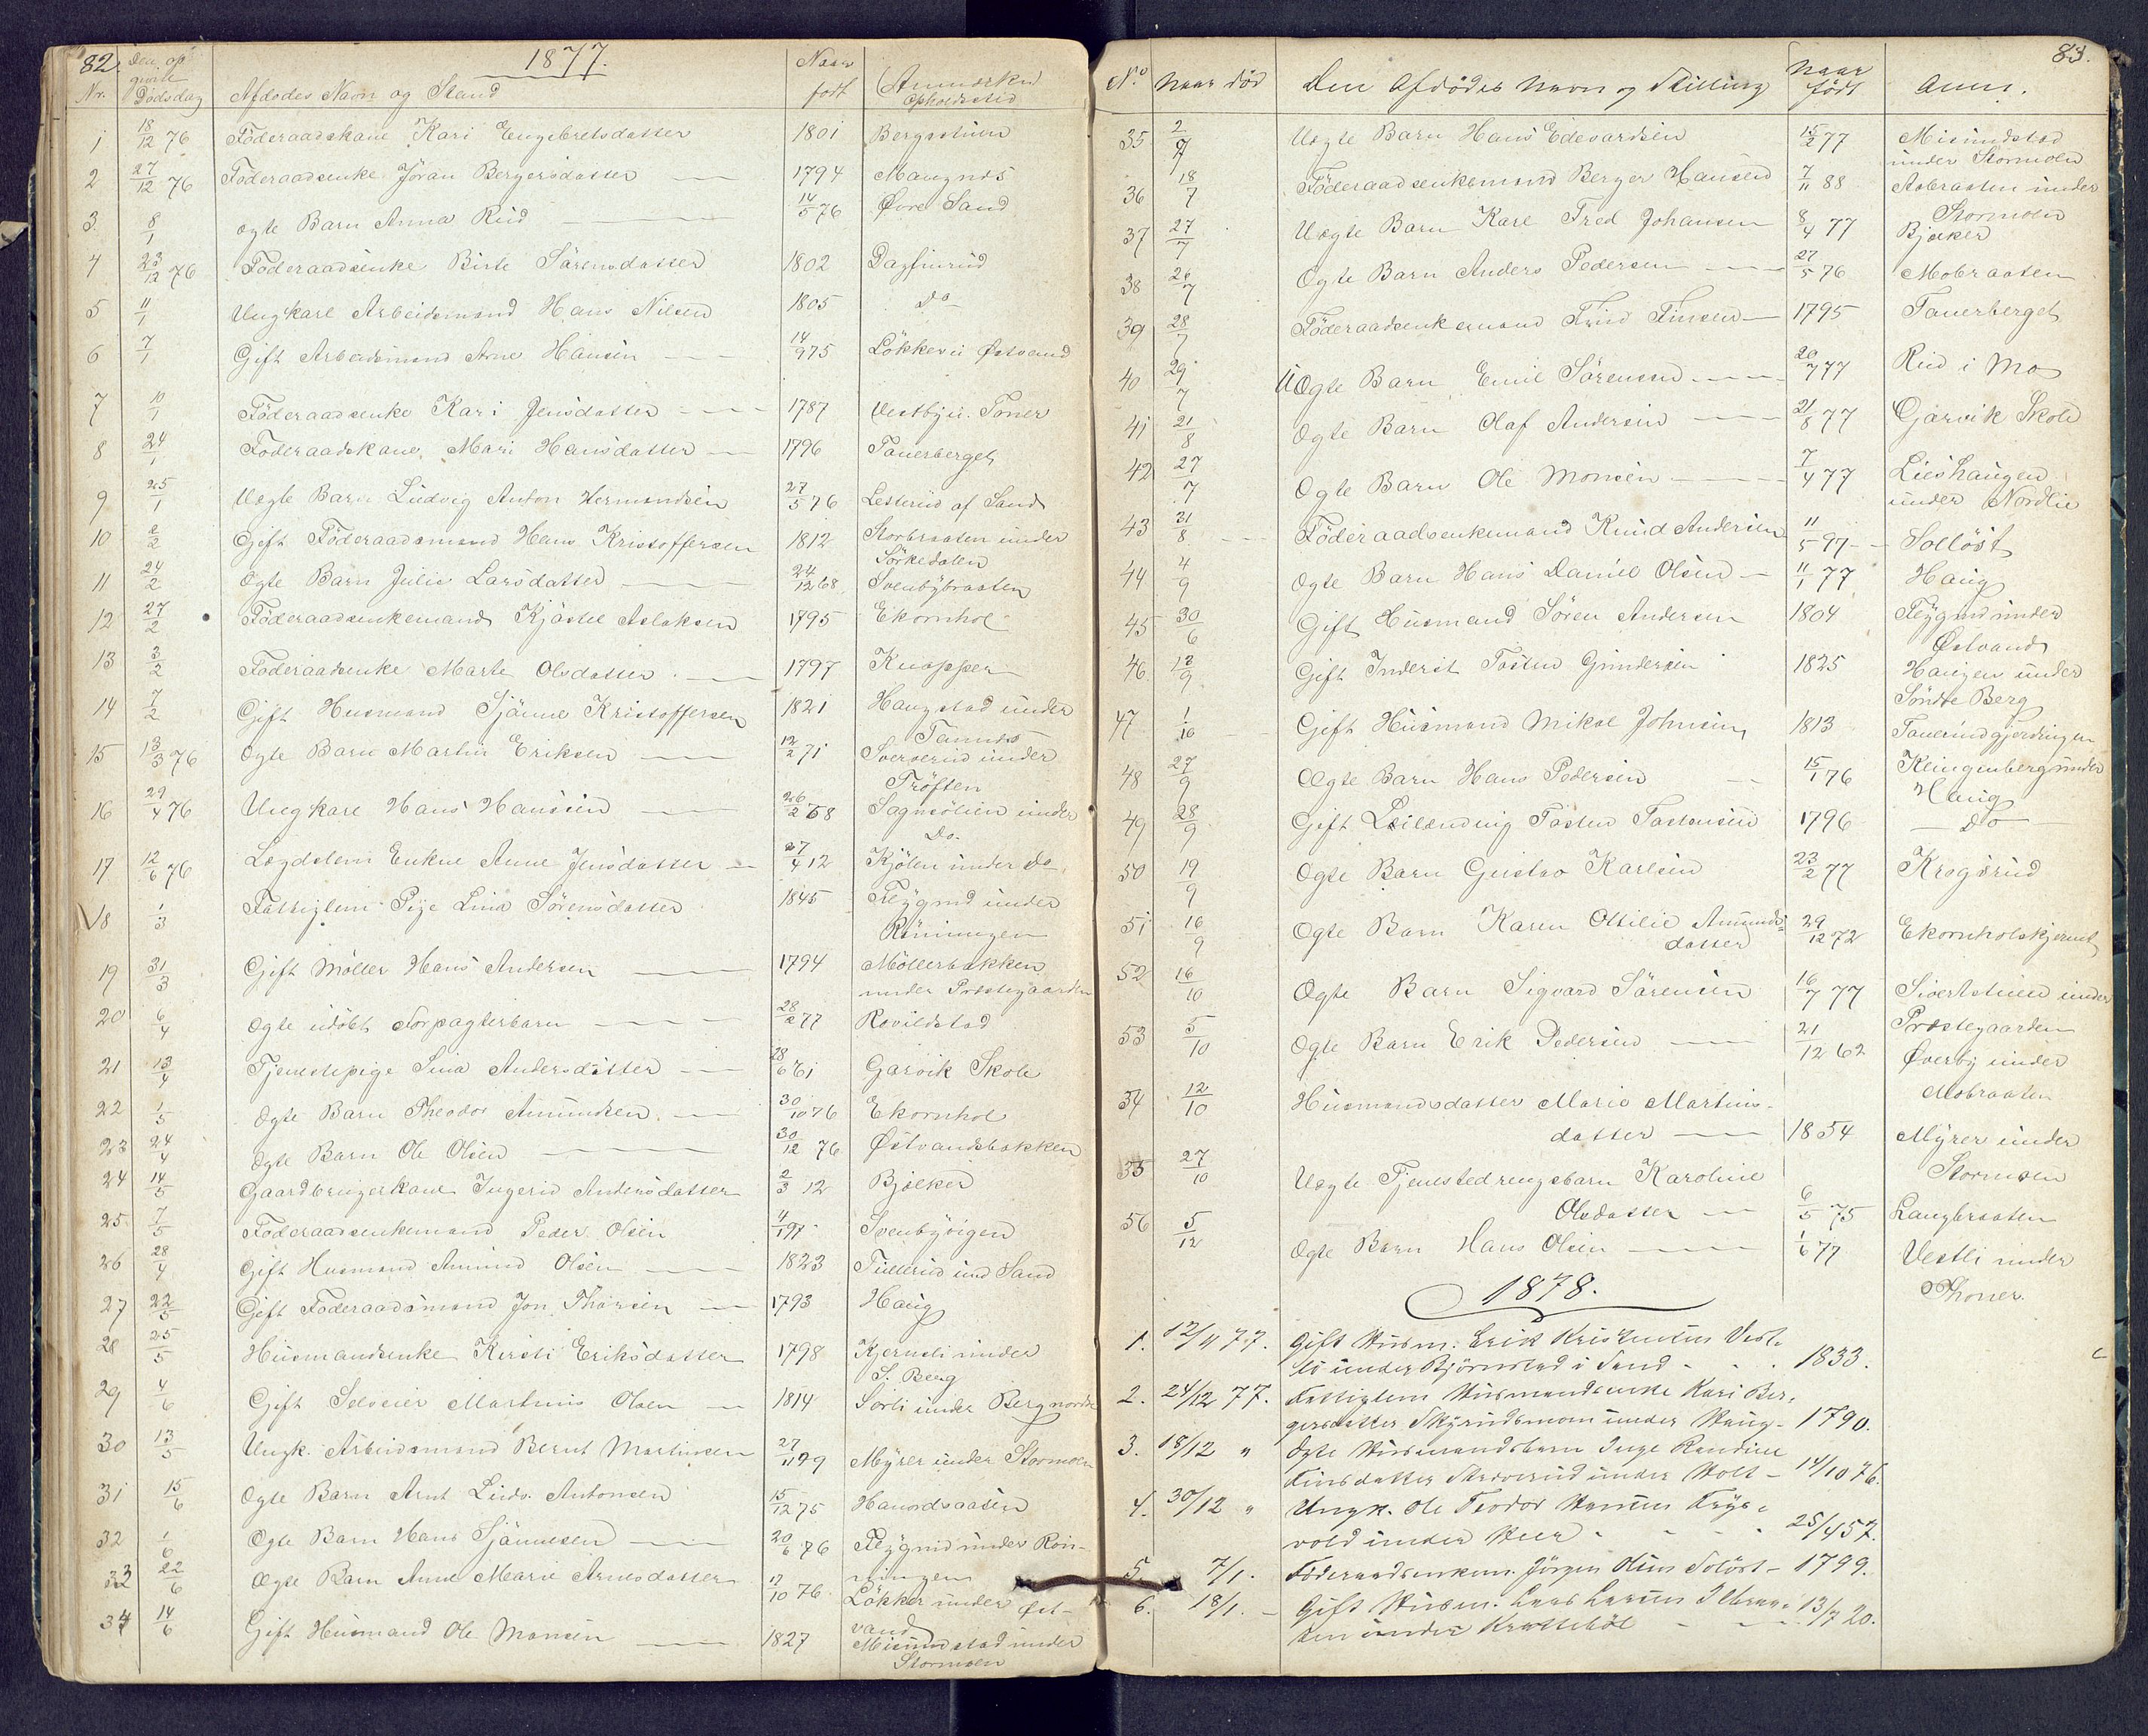 82. 1877.
Nr. Den opgivne Dødsdag Afdødes Navn og Stand Naar født Anmærkn Opholdssted
1 18/12 76 Föderaadskane Kari Engebretsdatter 1801 Bergsstuen
2 27/12 76 Föderaadsenke Jöran Bergersdatter 1794 Maugnæs
3. 8/1 ægte Barn Anna Rud 14/5 76 Øvre Sand
4 23/12 76 Föderaadsenke Birte Sörensdatter 1802 Dagfinrud
5 11/1 Ungkarl Arbeidsmand Hans Nilsen 1805 Do
6 7/1 Gift Arbeidsmand Arne Hansen 14/9 75 Lökken u Østvand
7 10/1 Föderaadsenke Kari Jensdatter 1787 Vestby u. Toner
8 24/1 Föderaadskane Mari Hansdatter 1796 Tauerberget
9 25/1 Uægte Barn Ludvig Anton Hermandsen 27/5 76 Lesterud af Sand
10 2/2 Gift Föderaadsmand Hans Kristoffersen 1812 Storbraaten under
Sörkedalen
11 24/2 Ægte Barn Julie Larsdatter 24/12 68 Svenbybraaten
12 27/2 Föderaadsenkemand Kjöstel Aslaksen 1795 Ekornhol
13 3/2 Föderaadsenke Marte Olsdatter 1797 Knapper
14 7/2 Gift Husmand Sjänne Kristoffersen 1821 Haugstad under
Tannæs
15 13/3 76 Ægte Barn Martin Eriksen 12/2 71 Sververud under
Tröften
16 29/4 76 Ungkarl Hans Hansen 26/2 58 Sagnsölien under
Do.
17 12/6 76 Lægdslem Enkne Anne Jensdatter 27/4 12 Kjölen under do
18 1/3 Fattiglem Pige Lina Sörensdatter 1845 Flygind under
Rönningen
19 31/3 Gift Möller Hans Andersen 1794 Möllerbakken
under Præstegaarden
20 6/4 Ægte udöbt Forpagterbarn 28/2 77 Rovildstad
21 13/4 Tjenestepige Lina Andersdatter 28/6 61 Garvik Skole
22 1/5 Ægte Barn Theodor Amundsen 30/10 76 Ekornhol
23 24/4 Ægte Barn Ole Olsen 30/12 76 Østvandsbakken
24 14/5 Gaardbrugerkane Ingerid Andersdatter 2/3 12 Bjælker
25 7/5 Föderaadsenkemand Peder Olsen 4/1 97 Svenbyvigen
26 28/4 Gift Husmand Amund Olsen 1823 Tullerud und Sand
27 22/5 Gift Föderaadsmand Jon Thorsen 1793 Haug
28 25/5 Husmandsenke Kirsti Eriksdatter 1798 Kjernsli under
S. Berg
29 4/6 Gift Selveier Martinus Olsen 1814 Sörli under Berg nordre
30 13/5 Ungk. Arbeidsmand Bernt Martinsen 27/11 99 Myrer under Stormoen
31 15/6 Ægte Barn Arnt Ludv. Antonsen 15/12 75 Hanordsaasen
32 1/6 Ægte Barn Hans Sjännesen 20/6 76 Flygind under Rön-
ningen
33 22/6 Ægte Barn Anne Marie Arnesdatter 17/10 76 Lökken under Øst-
vand
34 14/6 Gift Husmand Ole Monsen 1827 Misundstad under
Stormoen
83.
No Naar död Den Afdödes Navn og Stilling Naar födt Anm.
35 2/7 Uægte Barn Hans Edevardsen 15/2 77 Misundstad
under Stormoen
36 18/7 Föderaadsenkemand Berger Hansen 7/11 88 Asbraaten under
Stormoen
37 27/7 Uægte Barn Karl Fred Johansen 8/4 77 Bjælker
38 26/7 Ægte Barn Anders Pedersen 27/5 76 Mobraaten
39 28/7 Föderaadsenkemand Finn Finsen 1795 Tauerberget
40 29/7 UÆgte Barn Emil Sörensen 20/7 77 Rud i Mo
41 21/8 Ægte Barn Olaf Andersen 21/8 77 Garvik Skole
42 27/7 Ægte Barn Ole Monsen 7/4 77 Lieshaugen
under Nordlie
43 31/8 Föderaadsenkemand Knud Andersen 11/5 97 Solløst
44 4/9 Ægte Barn Hans Daniel Olsen 11/1 77 Haug
45 30/6 Gift Husmand Sören Andersen 1804 Flygind under
Østvand
46 12/9 Gift Inderst Tosten Gundersen 1825 Haugen under
Söndre Berg
47 1/10 Gift Husmand Mikal Johnsen 1813 Tauerudgjerdingen
48 27/9 Ægte Barn Hans Pedersen 15/1 76 Klingenberg under
Haug
49 28/9 Gift Leilænding Tosten Tostensen 1796 Do
50 19/9 Ægte Barn Gustav Karlsen 23/2 77 Krogsrud
51 16/9 Ægte Barn Karen Ottilie Amunds-
datter 29/12 72 Ekornholskjernet
52 16/10 Ægte Barn Sigvard Sörensen 16/7 77 Sivertstuen under
Præstegaarden
53 5/10 Ægte Barn Erik Pedersen 21/12 62 Øverby under
Mobraaten
54 12/10 Husmandsdatter Marie Martins-
datter 1854 Myrer under
Stormoen
55 27/10 Uægte Tjenestedrengsbarn Karoline
Olsdatter 6/5 75 Langbraaten
56 5/12 Ægte Barn Hans Olsen 1/6 77 Vestli under
Thoner.
1878.
1. 12/11 77. Gift Husm. Erik Kristensen Vest-
li under Björnstad i Sand 1833.
2. 24/12 77. Fattiglem Husmandsenke Kari Ber-
gersdatter Skyrudsmoen under Haug 1790.
3. 18/12 " Ægte Husmandsbarn Inge Randine
Finsdatter under Holt 14/10 76.
4. 30/12 " Ungk. Ole Teodor Hansen Frys-
vold under Heer 25/4 57.
5. 7/1. Föderaadsenkem. Jörgen Olsen Solöst 1799.
6. 18/1. Gift Husm. Lars Larsen
ten under Krattebøl 13/7 20.